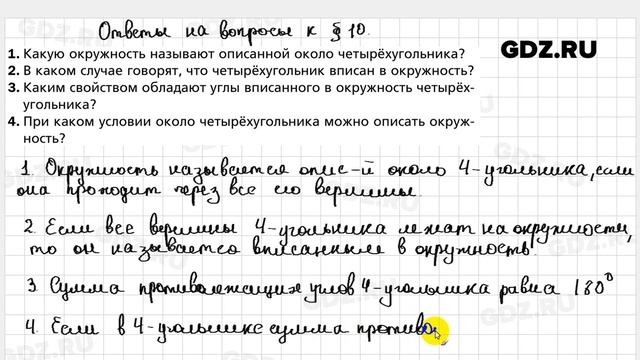 Ответы на вопросы к § 10.
GDZ.RU
1. Какую окружность называют описанной около четырёхугольника?
2. В каком случае говорят, что четырёхугольник вписан в окружность?
3. Каким свойством обладают углы вписанного в окружность четырёх-
угольника?
4. При каком условии около четырёхугольника можно описать окруж-
ность?
1. Окружность называется опис-й около 4-угольника, если
она проходит через все его вершины.
2. Если все вершины 4-угольника лежат на окружности,
то он называется вписанным в окружность.
3. Сумма противолежащих углов 4-угольника равна 180°
4. Если в 4-угольнике сумма противо